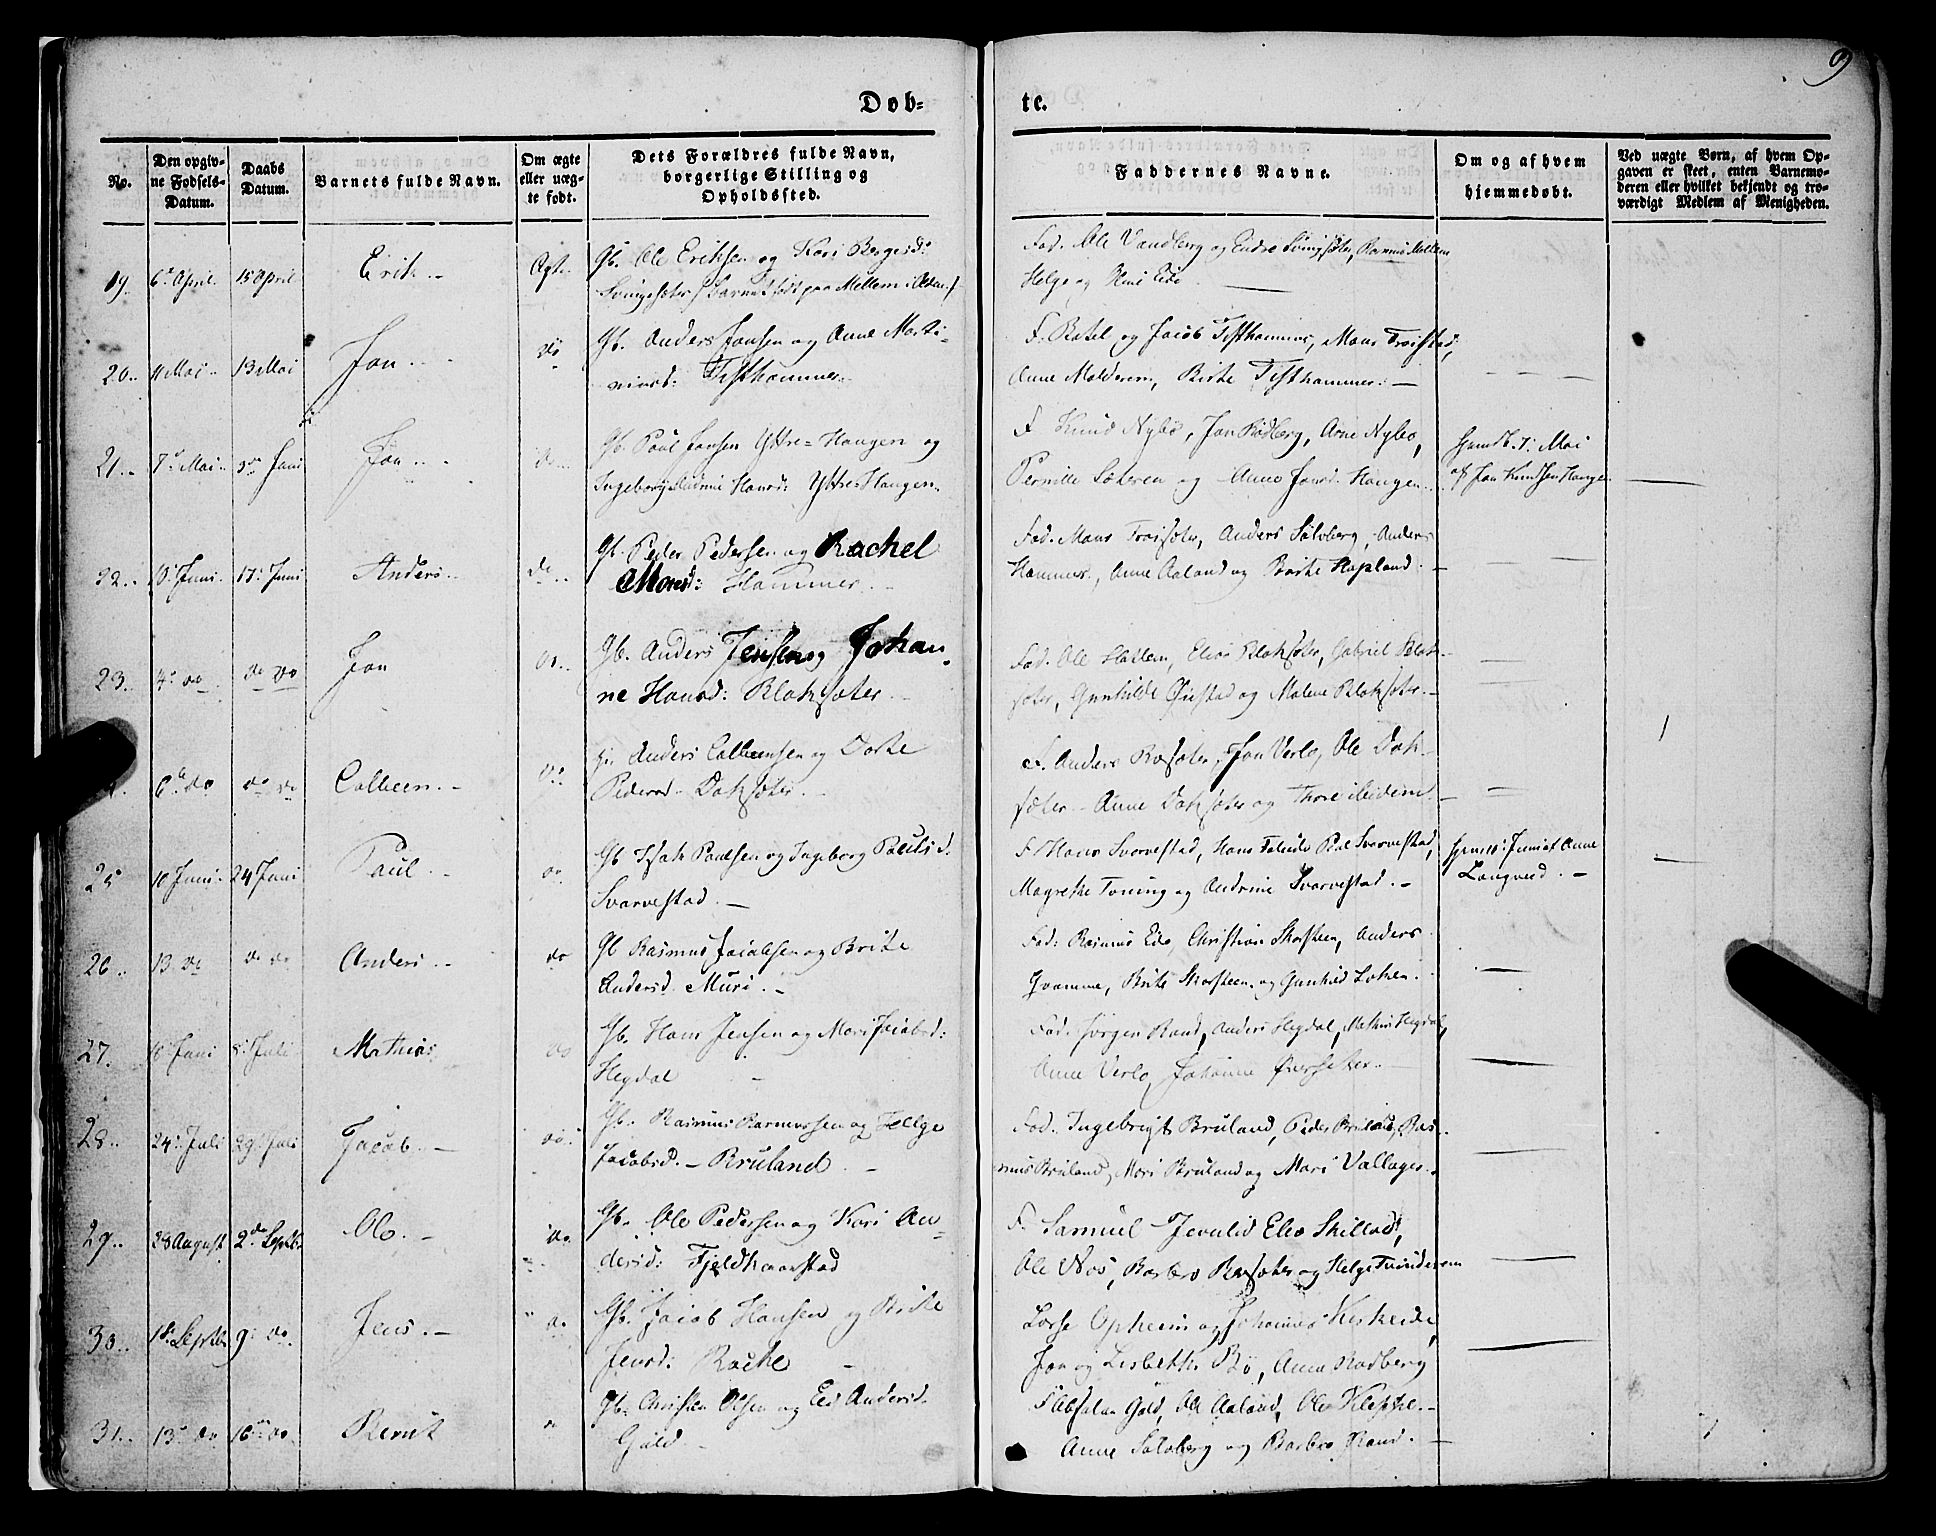 9
Døb-
te.
No.
Den opgiv-
ne Fødsels-
Datum.
Daabs
Datum.
Barnets fulde Navn.
Om ægte
eller uæg-
te født.
Dets Forældres fulde Navn,
borgerlige Stilling og
Opholdssted.
Faddernes Navne.
Om og af hvem
hjemmedøbt.
Ved uægte Børn, af hvem Op-
gaven er skeet, enten Barnemo-
deren eller hvilket bekjendt og tro-
værdigt Medlem af Menigheden.
19. 6te April. 15 April Erik. Ægt. Gb. Ole Eriksen og Kari Bergesd:
Svingesæter / Barnet født paa Mellem i Olden /
Fad. Ole Vandberg og Endre Svingsæter, Rasmus Mellem
Helge og Eide
20. 11 Mai 13 Mai Jon do Gb. Anders Jonsen og Anne Marti-
nusd: Festhammer.
F. Botel og Jacob Festhammer, Mons Troistad,
Anne Molderem, Birte Festhammer.
21. 7de Mai 3die Juni Jon do Gb. Paul Jonsen Yttre-Haugen og
Ingeborg Andrine Hansd: Yttre-Haugen.
F Knud Nybø, Jon Rødberg, Arne Nybø,
Pernille Sæteren og Anne Jonsd. Haugen
hjemdb. 7: Mai
af Jon Knudsen Haugen
22. 10: Juni. 17: Juni Anders. do Gb. Peder Pedersen og Rachel
Monsd: Hammer.
Fad. Mons Troisæter, Anders Solvberg, Anders
Hammer, Anne Aaland og Birte Hopland.
23. 4: do do do Jon do. Gb. Anders Jensen og Johan-
ne Hansd: Bloksæter.
Fad. Ole Hatlem, Elias Bloksæter, Gabriel Blok-
sæter, Gunhilde Ørestad og Malene Bloksæter.
6te do do do Colbeen. do Gb. Anders Colbeensen og Dorte
Pedersd. Doksæter.
F. Anders Rosæter, Jon Verlo, Ole Dok-
sæter. Anne Doksæter og Thore ibidem.
25 10 Juni. 24 Juni Paul. do Gb Isak Paulsen og Ingeborg Paulsd:
Svarvestad.
F Hans Svarvestad, Hans Svarvestad,
Magrethe Tvning og Andrine Svarvestad.
Juni af Anne
Langvend.
26. 13 do do do Anders. do Gb Rasmus Jacobsen og Brite
Andersd. Muri.
Fad: Rasmus Eide, Christian Skorsteen, Anders
Qvamme, Brite Skorsteen og Gunhild Loken.
27. Juni 8: Juli Mathias do Gb. Hans Jensen og Mari Jacobsd:
Hegdal
Fad. Jørgen Rand, Anders Hegdal, Mathias Hegdal,
Anne Verlo, Johanne Øversæter.
28. 24: Juli 29: Juli Jacob. do Gb. Rasmus Rasmussen og Helge
Jacobsd. Bruland.
Fad. Ingebrigt Bruland, Peder Bruland, Ras-
mus Bruland, Mari Bruland og Mari Vallager.
29. 28 August 2den Septbr Ole. do. Gb. Ole Pedersen og Kari An-
dersd: Fjeldkaarstad
F. Samuel Elias Skillad,
Ole Vos, Barbro Rosæter og Helge Tvinderem
30. 1ste Septbr 9: do Jens. do Gb. Jacob Hansen og Brite
Jensd: Rake
Lasse Opheim og Johannes Keskeide,
Jon og Lisbeth Bø, Anne Rødberg
31. 13de do 16de do Bernt do Gb. Christen Olsen og Eli Andersd.
Guld
F Absalon Guld, Ole Aaland, Ole Kleppe.
Anne Solvberg og Barbro Rand.